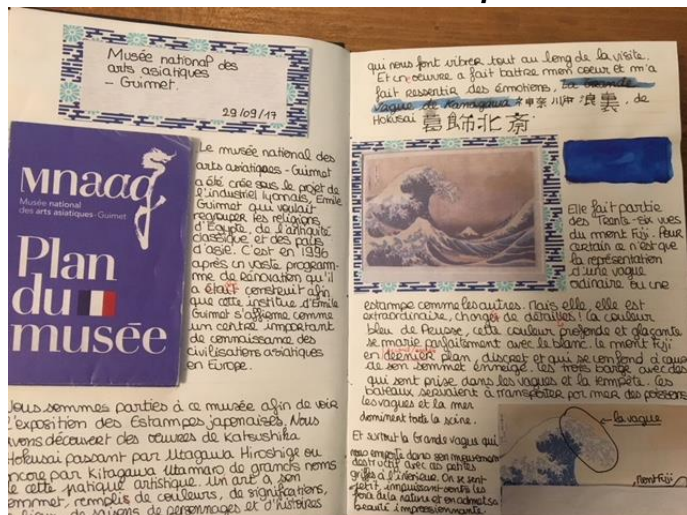 Musée national des
arts asiatiques
- Guimet.
29/09/17
mnaag
Musée national
des arts asiatiques - Guimet
Plan
du
musée
Le musée national des
arts asiatiques - Guimet
a été crée sous le projet de
l'industriel lyonnais, Emile
Guimet qui voulait
regrouper les religions
d'Egypte, de l'antiquité
classique et des pays
d'asie. C'est en 1996
après un vaste programm-
me de rénovation qu'il
a était construit afin
que cette institue d'Emile
Guimet s'affieme comme
un centre important
de connaissance des
civilisations asiatiques
en Europe.
Nous sommes parties à ce musée afin de voir
l'exposition des Estampes japonaises. Nous
avons découvert des oeuvres de Katsushika
Hokusai passant par Utagawa Hiroshige ou
encore par Kitagawa Utamaro de grands noms
de cette pratique artistique. Un art à son
sommet, remplis de couleurs, de significations,
de saisons de personnages et d'histoires
qui nous font vibrer tout au long de la visite.
Et un oeuvre a fait battre mon coeur et m'a
fait ressentir des émotions, La Grande
vague de Kanagawa 神奈川沖浪裏, de
Hokusai 葛飾北斎.
Elle fait partie
des Trente-six vues
du mont Fuji. Pour
certain ce n'est que
la représentation
d'une vague
odinaire ou une
estampe comme les autres. Mais elle, elle est
extraordinaire, chargés de détailles! La couleur
bleu de Peusse, cette couleur profonde et glaçante
se marie parfaitement avec le blanc. Le mont Fiji
en dernier plan, discret et qui se confond à cause
de son sommet enneigé. Les trois barge avec des
qui sont prise dans les vagues et la tempête. Ces
bateaux servaient à transporter par mer des poissons
les vagues et la mer
dominent toute la scène.
Et surtout la Grande vague qui
nous emporte dans son mouvement
destructif avec ces petites
griffes à l'intérieur. On se sent
petit, impuissant contre les
force de la nature et on admet sa
beauté impressionnante.
la vague
Mont Fuji